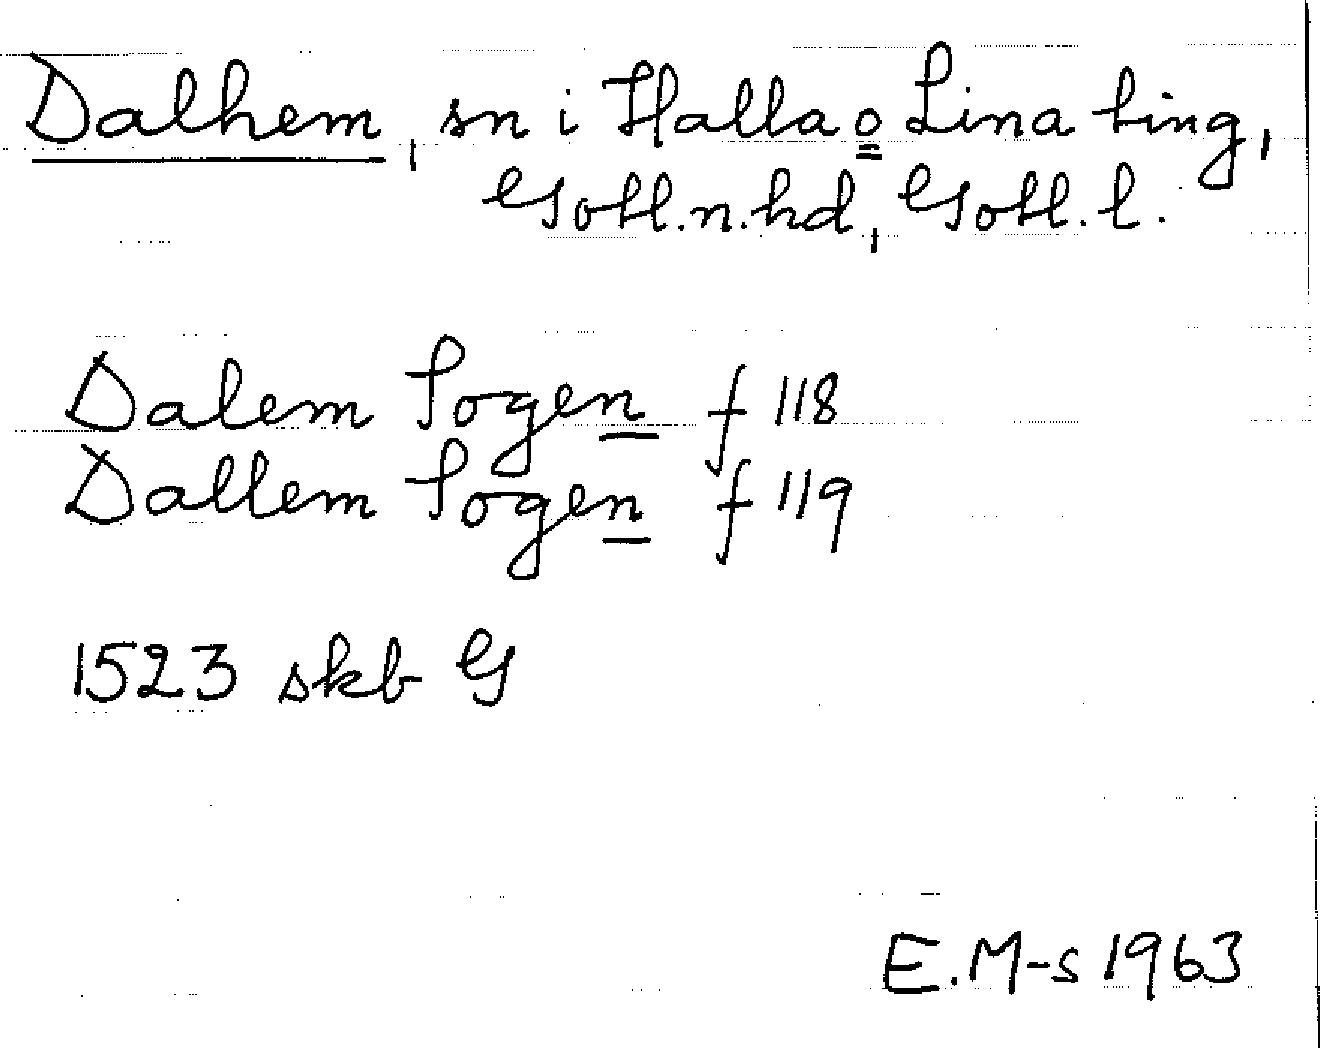 Dalhem, sn i Halla o Lina ting,
Gotl.n.hd, Gotl.l.
Dalem Sogen f 118
Dallem Sogen f 119
1523 skb G
E.M-s 1963